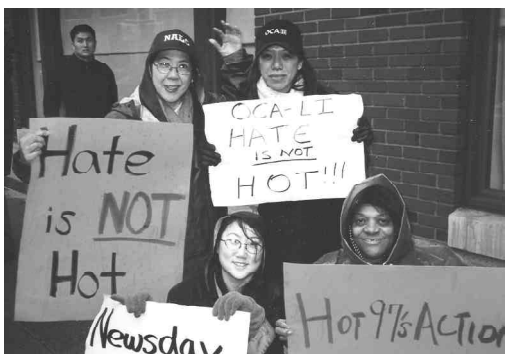 OCA-LI
HATE
IS NOT
HOT!!!
Hate
is NOT
Hot
Newsday
Hot 97's ACTION